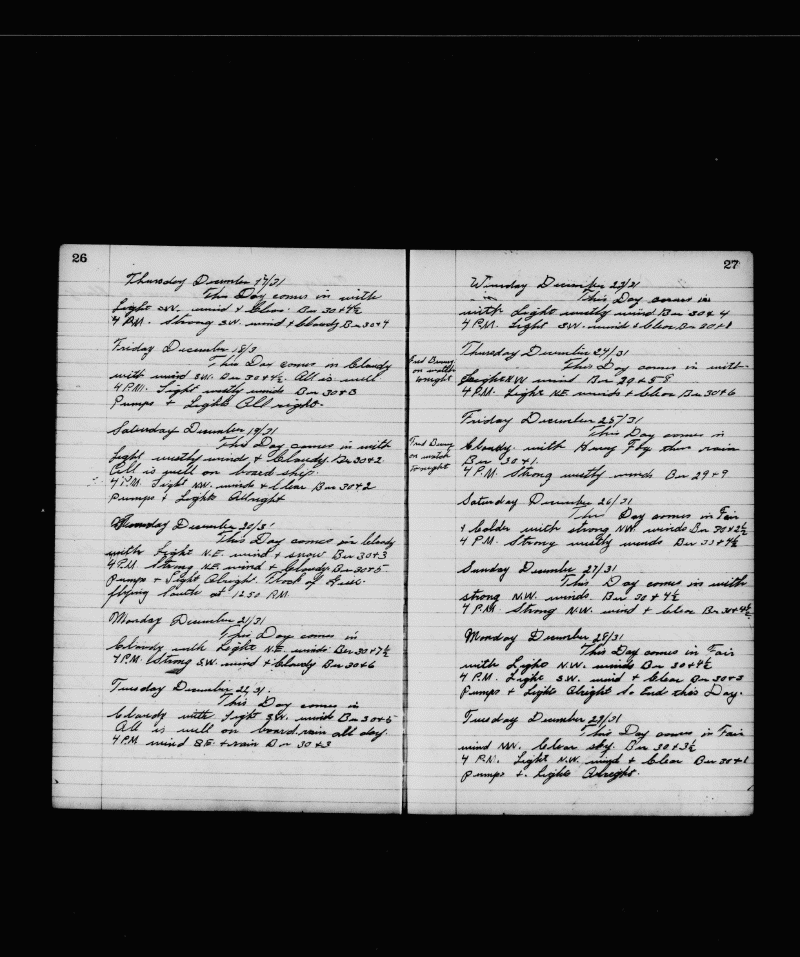 26
Thursday December 17/31
This Day comes in with
Light S.W. wind & Clear. Bar 30+4½
4 P.M. Strong S.W. wind & Cloudy Bar 30+4
Friday December 18/3
This Day comes in Cloudy
with wind S.W. Bar 30+4½. All is well
4 P.M. Light westly winds Bar 30+3
Pumps + Lights All right.
Saturday December 19/31
This Day comes in with
Light westly wind & Cloudy Bar 30+2
All is well on board ship.
4 P.M. Light N.W. winds & Clear Bar 30+2
Pumps & Lights Allright
Sunday December 20/31
This Day comes in Cloudy
with Light N.E. wind & snow Bar 30+3
4 P.M. Strong N.E. wind & Cloudy Bar 30+5
Pumps + Light Alright. Flock of Geese
flying South at 12.50 P.M.
Monday December 21/31
This Day comes in
Cloudy with Light N.E. winds Bar 30+7½
4 P.M. Strong S.W. wind & Cloudy Bar 30+6
Tuesday December 22/31.
This Day comes in
Cloudy with Light S.W. winds Bar 30+5
All is well on board. rain all day.
4 P.M. wind S.E. + rain Bar 30+3
27
Wensday December 23/31
This Day comes in
with Light westly wind Bar 30+4
4 P.M. Light S.W. wind & Clear Bar 30+8
Thursday December 24/31
This Day comes in with
Light N.W wind Bar 29+5
4 P.M. Light N.E. winds & Clear Bar 30+6
Fred
on watch
tonight
Friday December 25/31
This Day comes in
Cloudy with Heavy Fog then rain
Bar 30+1.
4 P.M. Strong westly winds Bar 29+9
Fred
on watch
tonight
Saturday December 26/31
This Day comes in Fair
+ Colder with strong N.W. winds Bar 30+2½
4 P.M. Strong westly winds Bar 30+4½
Sunday December 27/31
This Day comes in with
strong N.W. winds. Bar 30+4½
4 P.M. Strong N.W. wind + Clear Bar 30+4½
Monday December 28/31
This Day comes in Fair
with Light N.W. winds Bar 30+4½
4 P.M. Light S.W. wind & Clear Bar 30+3
Pumps + Lights Alright to End this Day.
Tuesday December 29/31
This Day comes in Fair
wind NW. Clear sky. Bar 30+3½
4 P.M. Light N.W. wind + Clear Bar 30+1
pumps + lights Alright.